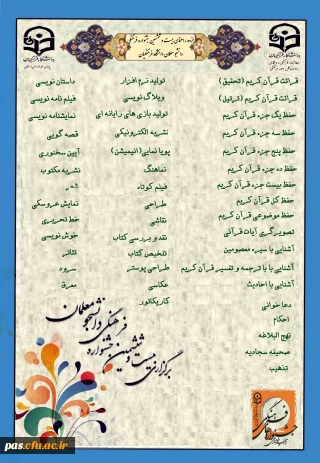 جزوه راهنمای بیست و ششمین جشنواره فرهنگی
دانشجو معلمان دانشگاه فرهنگیان
قرائت قرآن کریم (تحقیق)
قرائت قرآن کریم (ترتیل)
حفظ یک جزء قرآن کریم
حفظ سه جزء قرآن کریم
حفظ پنج جزء قرآن کریم
حفظ ده جزء قرآن کریم
حفظ بیست جزء قرآن کریم
حفظ کل قرآن کریم
حفظ موضوعی قرآن کریم
تصویرگری آیات قرآنی
آشنایی با سیره معصومین
آشنایی با با ترجمه و تفسیر قرآن کریم
آشنایی با احادیث
دعا خوانی
احکام
نهج البلاغه
صحیفه سجادیه
تذهیب
تولید نرم افزار
وبلاگ نویسی
تولید بازی های رایانه ای
نشریه الکترونیکی
پویا نمایی(انیمیشن)
نماهنگ
فیلم کوتاه
طراحی
نقاشی
نقد و بررسی کتاب
تلخیص کتاب
طراحی پوستر
عکاسی
کاریکاتور
داستان نویسی
فیلم نامه نویسی
نمایشنامه نویسی
قصه گویی
آیین سخنوری
نشریه مکتوب
شعر
نمایش عروسکی
خط تحریری
خوش نویسی
تئاتر
سرود
معرق
برگزاری بیست و ششمین جشنواره
فرهنگی دانشجو معلمان
pas.cfu.ac.ir